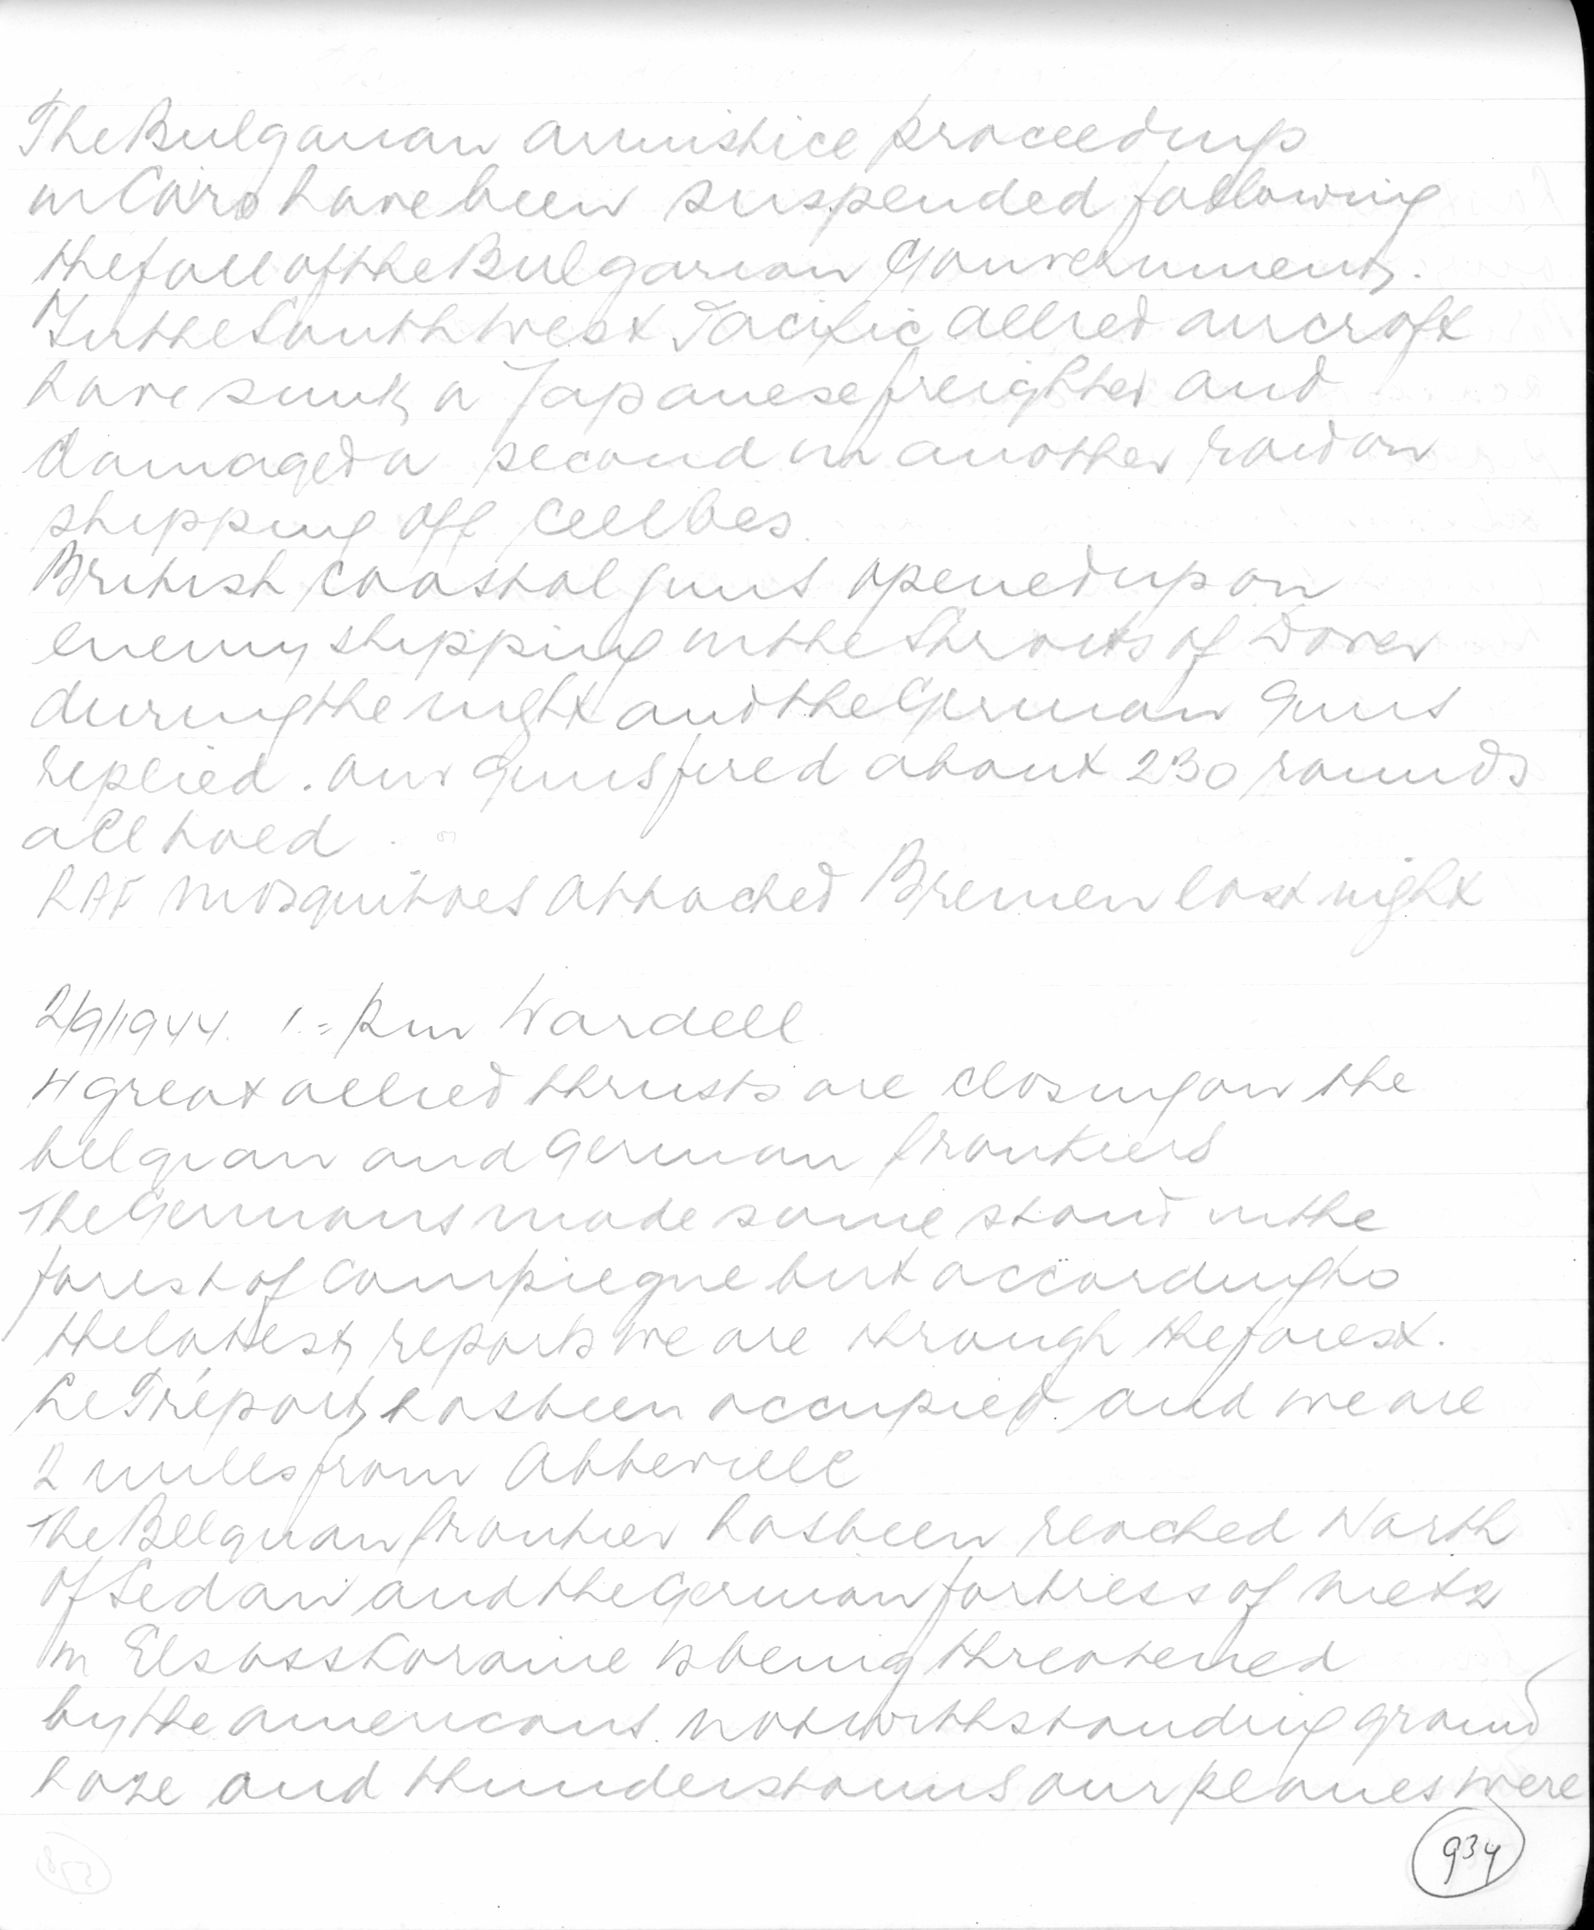 The Bulgarian armistice proceedings
in Cairo have been suspended following
the fall of the Bulgarian Gouvernment.
In the South West Pacific allied aircraft
have sunk a Japanese freighter and
damaged a second in another raid on
shipping off Cellbes.
British coastal guns opened up on
enemy shipping in the Straits of Dover
during the night and the German guns
replied. Our guns fired about 230 rounds
all toed
RAF Mosquitoes attacked Bremen last night
2/9/1944. 1.= pm Wardell
4 great allied thrusts are closing on the
belgian and German frontiers
The Germans made some stand in the
forest of Compiegne but according to
the latest reports we are through the forest.
Le Tréport has been occupied and we are
2 miles from Abbeville
The Belgian frontier has been reached North
of Sedan and the German fortress of Metz
in Elsass Loraine is being threatened
by the americans. Notwithstanding ground
haze and thunderstorms our planes were
934